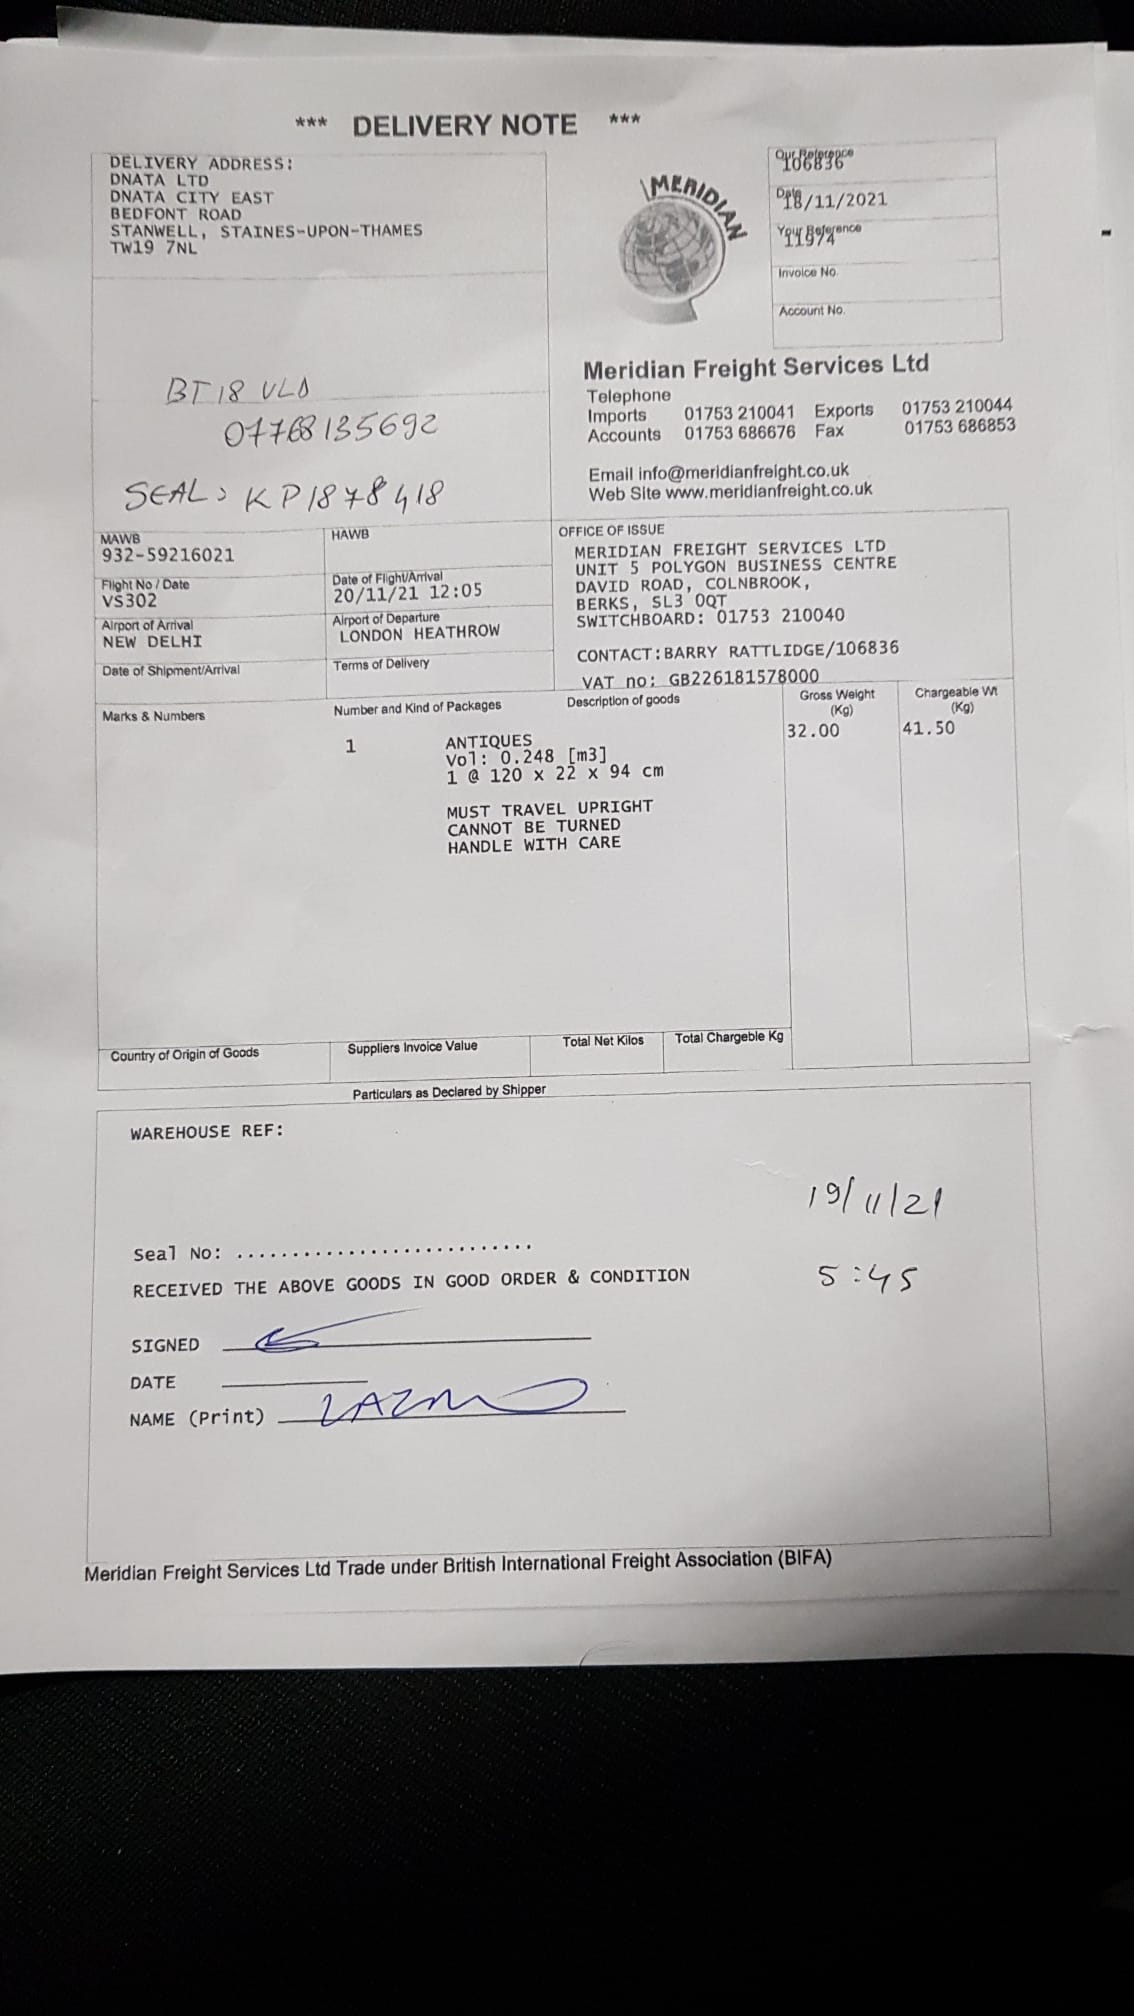 *** DELIVERY NOTE ***
DELIVERY ADDRESS:
DNATA LTD
DNATA CITY EAST
BEDFONT ROAD
STANWELL, STAINES-UPON-THAMES
TW19 7NL
MERIDIAN
Our Reference
106836
Date
18/11/2021
Your Reference
11974
Invoice No.
Account No.
BT18 VLD
07768135692
SEAL: KP1878418
Meridian Freight Services Ltd
Telephone
Imports 01753 210041 Exports 01753 210044
Accounts 01753 686676 Fax 01753 686853
Email info@meridianfreight.co.uk
Web Site www.meridianfreight.co.uk
MAWB
932-59216021
HAWB
Flight No / Date
VS302
Date of Flight/Arrival
20/11/21 12:05
Airport of Arrival
NEW DELHI
Airport of Departure
LONDON HEATHROW
Date of Shipment/Arrival
Terms of Delivery
OFFICE OF ISSUE
MERIDIAN FREIGHT SERVICES LTD
UNIT 5 POLYGON BUSINESS CENTRE
DAVID ROAD, COLNBROOK,
BERKS, SL3 0QT
SWITCHBOARD: 01753 210040
CONTACT:BARRY RATTLIDGE/106836
VAT no: GB226181578000
Marks & Numbers
Number and Kind of Packages
Description of goods
Gross Weight
(Kg)
Chargeable Wt
(Kg)
1
ANTIQUES
Vol: 0.248 [m3]
1 @ 120 x 22 x 94 cm
32.00
41.50
MUST TRAVEL UPRIGHT
CANNOT BE TURNED
HANDLE WITH CARE
Country of Origin of Goods
Suppliers Invoice Value
Total Net Kilos
Total Chargeble Kg
Particulars as Declared by Shipper
WAREHOUSE REF:
19/11/21
Seal No: ...........................
5:45
RECEIVED THE ABOVE GOODS IN GOOD ORDER & CONDITION
SIGNED
DATE
NAME (Print)
Meridian Freight Services Ltd Trade under British International Freight Association (BIFA)